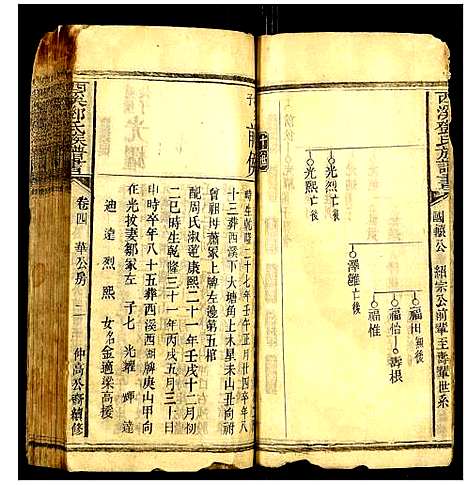 西溪鄧氏族譜書
國鑲公
紹宗公前輩至壽輩世系
光烈 亡後
光熙 亡後
澤雝 亡後
福田 無後
福怡
壽根
福惟
子
光耀
時生乾隆二十七年壬午正月廿四卒年八
十三葬西溪下大塘角上木星未山丑向祔
曾祖母蕭冢上牌左邊第五棺
配周氏淑蓮康熙二十一年壬戌十二月初
二巳時生乾隆三十一年丙戌五月三十日
西時卒年八十五葬西溪西湖牌庚山甲向
在光拔妻鄒冢左 子七 光耀 輝 達
迪 達 烈 熙 女名金適梁高模
卷四
華公房
二
仲高公齋續修